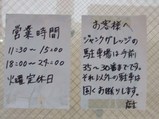 営業時間
11:30〜15:00
18:00〜24:00
火曜定休日
お客様へ
ジャンクガレッジの
駐車場は手前
35〜30番まです。
それ以外の駐車は
固くお断りします。
店主